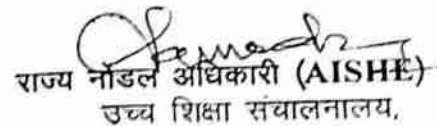 राज्य नोडल अधिकारी (AISHE)
उच्च शिक्षा संचालनालय,